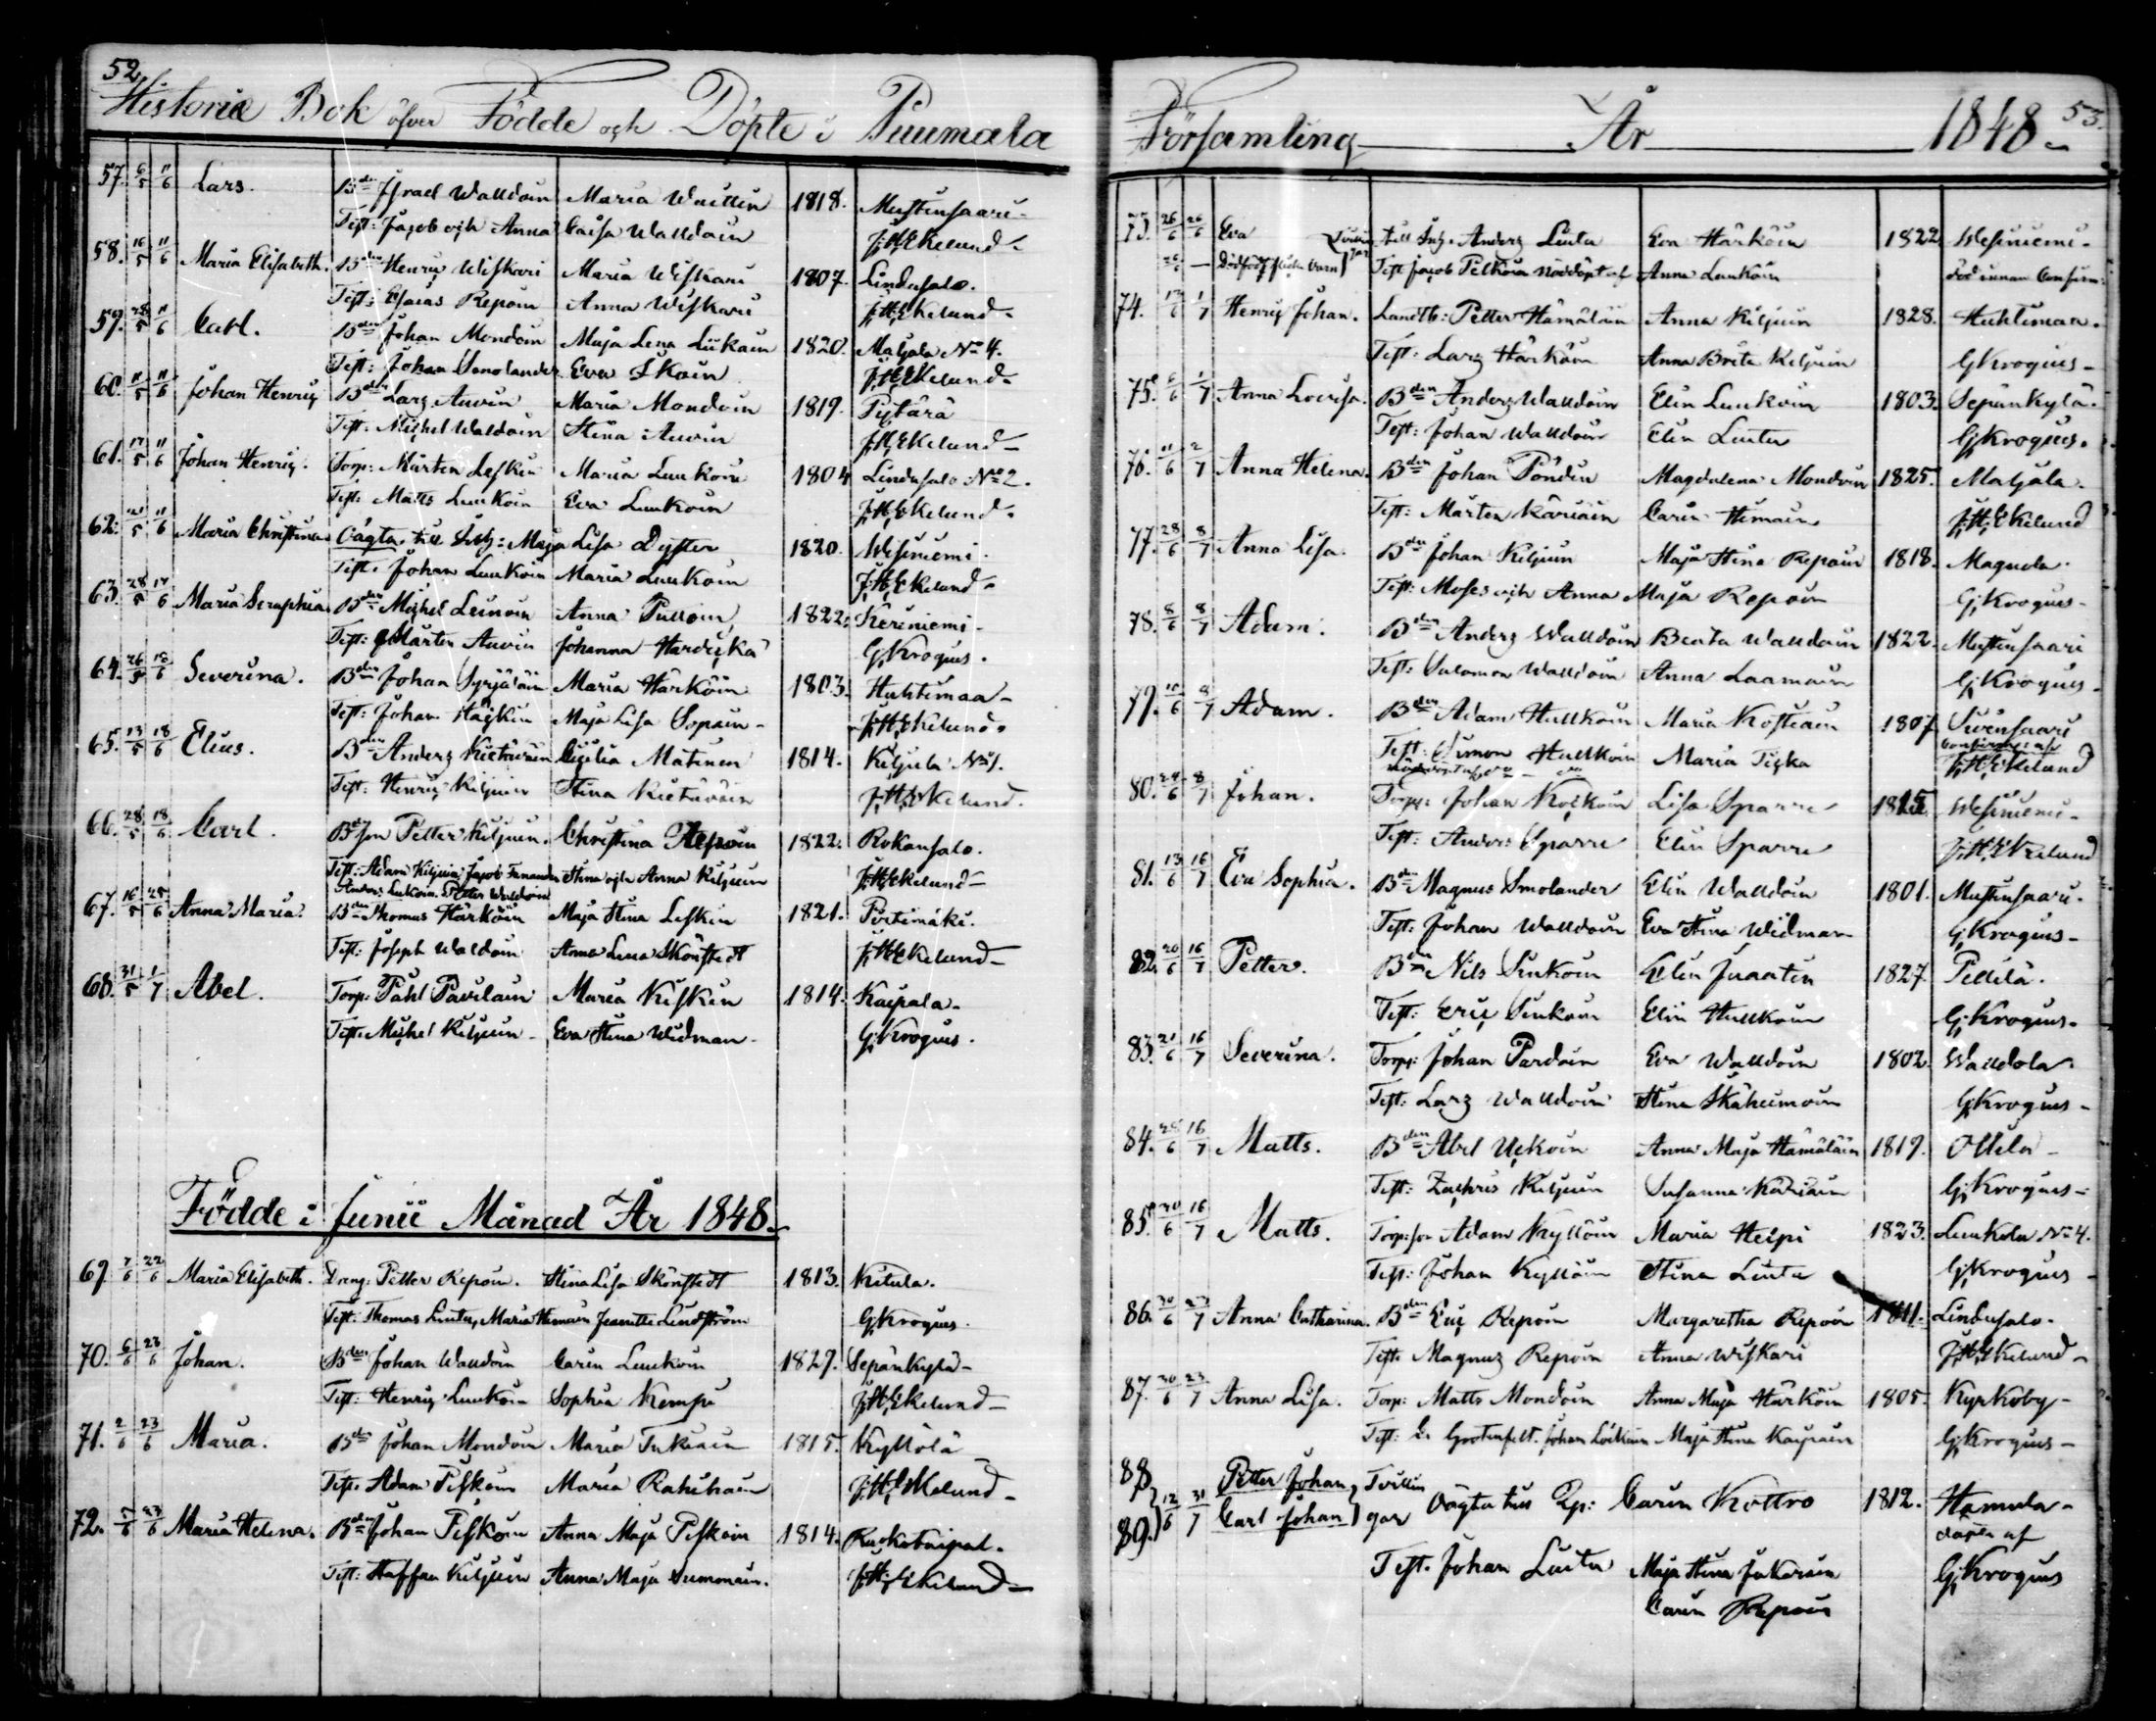 52
Historia Bok öfver Födde och Döpte i Puumala
57. 6/5 11/6 Lars. Bden Israel Walldoin Maria Waittin 1818. Mustinsaari
Test: Jacob och Anna Caisa Walldoin J:H:Ekelund
58. 16/5 11/6 Maria Elisabeth. Bden Henric Wiskari Maria Wiskari 1807. Lindusalo.
Test: Esaias Repoin Anna Wiskari J:H:Ekelund
59. 28/5 11/6 Carl. Bden Johan Mondoin Maja Lena Liikain 1820. Maljala No 4.
Test: Johan Smolander Eva Ikoin J:H:Ekelund
60. 11/5 11/6 Johan Henric Bden Lars Auvin Maria Mondoin 1819.
Test: Michel Waldoin Stina Auvin J:H:Ekelund
61. 17/5 11/6 Johan Henric. Torp: Mårten Leskin Maria Luukoin 1804 Lindusalo No 2.
Test: Matts Luukoin Eva Luukoin J:H:Ekelund
62. 21/5 11/6 Maria Christina Oägta till Inh: Maja Lisa Dyster 1820. Wesiniemi.
Test: Johan Luukoin Maria Luukoin J:H:Ekelund
63. 28/5 17/6 Maria Seraphia Bden Michel Leinoin Anna Pulloin 1822. Keriniemi
Test: Mårten Auvin Johanna G:Krogius.
64. 26/5 18/6 Severina. Bden Johan Syrjäläin Maria Härköin 1803. Huhtimaa
Test: Johan Häyhin Maja Lisa Sopain J:H:Ekelund
65. 13/5 18/6 Elias. Bden Anders Kietäväin Cicilia Matinen 1814. Kiljula No 1.
Test: Henric Kiljuin Stina Kietäväin J:H:Ekelund.
66. 28/5 18/6 Carl. Bdeson Petter Kiljuin. Christina Repoin 1822. Rokansalo.
Test: Adam Kiljuin, Jacob Stina och Anna Kiljuin J:H:Ekelund
Anders Luukoin. Petter Waldoin
67. 16/5 25/6 Anna Maria. Bden Thomas Härköin Maja Stina Leskin 1821. Portimäki.
Test: Joseph Waldoin Anna Lena Skönstedt J:H:Ekelund
68. 31/5 1/7 Abel. Torp: Påhl Pavilain Maria Kiskin 1814. Kaipala
Test: Michel Kiljuin Eva Stina Widman. G:Krogius.
Födde i Junii Månad År 1848
69. 7/6 22/6 Maria Elisabeth. Dreng: Petter Repoin. Stina Lisa Skönstedt 1813. Kitula.
Test: Thomas Liuta, Maria Himain Jeanette Lindström G:Krogius.
70. 6/6 23/6 Johan. Bden Johan Walldoin Carin Luukoin 1829. Sepänkylä
Test: Henric Luukoin Sophia Kempi J:H:Ekelund
71. 2/6 23/6 Maria. Bden Johan Mondoin Maria Tukiain 1815. Kyllölä
Test: Adam Piskoin Maria Rahikain J:H:Ekelund
72. 5/6 23/6 Maria Helena. Bden Johan Piskoin Anna Maja Piskoin 1814. Ruokotaipal.
Test: Staffan Kiljuin Anna Maja Summain. J:H:Ekelund
Församling År 1848 53.
73. 26/6 26/6 Eva till Inh. Anders Liuta Eva Härköin 1822 Wesiniemi
Dödfödt flicko barn Test Jacob Pelkoin nöddöpt af Anna Luukoin död innan Confirm:
74. 17/6 1/7 Henric Johan. Landtb: Petter Hämäläin Anna Kiljuin 1828. Huhtimaa.
Test: Lars Härköin Anna Brita Kiljuin G:Krogius
75. 6/6 1/7 Anna Lovisa. Bden Anders Walldoin Elin Luukoin 1803. Sepänkylä.
Test: Johan Walldoin Elin Liuta G:Krogius.
76. 11/6 2/7 Anna Helena. Bden Johan Pöndin Magdalena Mondoin 1825. Maljala.
Test: Mårten Käriäin Carin Himain J:H:Ekelund
77. 28/6 8/7 Anna Lisa. Bden Johan Kiljuin Maja Stina Repoin 1818. Maguola
Test: Moses och Anna Maja Repoin G:Krogius
78. 8/6 8/7 Adam. Bden Anders Walldoin Beata Walldoin 1822. Mustinsaari
Test: Salomon Walldoin Anna Laamain G:Krogius
79. 10/6 8/7 Adam. Bden Adam Hullkoin Maria Kostiain 1807. Sirensaari
Test: Simon Hullkoin Maria Ticka Confirm: af J:H:Ekelund
80. 24/6 8/7 Johan. Torp: Johan Koikoin Lisa Sparre 1815. Wesiniemi
Test: Anders Sparre Elin Sparre J:H:Ekelund
81. 13/6 16/7 Eva Sophia. Bden Magnus Smolander Elin Walldoin 1801. Mustinsaari.
Test: Johan Walldoin Eva Stina Widman G:Krogius
82. 20/6 16/7 Petter. Bden Nils Sinkoin Elin Juuutin 1827. Pellilä.
Test: Eric Sinkoin Elin Hullkoin G:Krogius.
83. 21/6 16/7 Severina. Torp: Johan Pardoin Eva Walldoin 1802. Walldola
Test: Lars Walldoin Stina G:Krogius
84. 28/6 16/7 Matts. Bden Abel Uckoin Anna Maja Hämäläin 1819. Ollila
Test: Zachris Kiljuin Susanna Käriäin G:Krogius
85. 30/6 16/7 Matts. Torp:son Adam Kyllöin Maria Heipi 1823. Luukola No 4.
Test: Johan Kyllöin Stina Liuta G:Krogius
86. 30/6 23/7 Anna Catharina. Bden Eric Repoin Margaretha Repoin 1811. Lindusalo.
Test: Magnus Repoin Anna Wiskari J:H:Ekelund
87. 30/6 23/7 Anna Lisa. Torp: Matts Mondoin Anna Maja Härköin 1805. Kyrkoby
Test: Grotenfelt. Johan Maja Stina Kaipain G:Krogius
88. Petter Johan Tvillin
89. 12/6 31/7 Carl Johan gar Oägta till Carin Kottro 1812. Hamula
Test. Johan Liuta Maja Stina döpta af
Carin Repoin G:Krogius